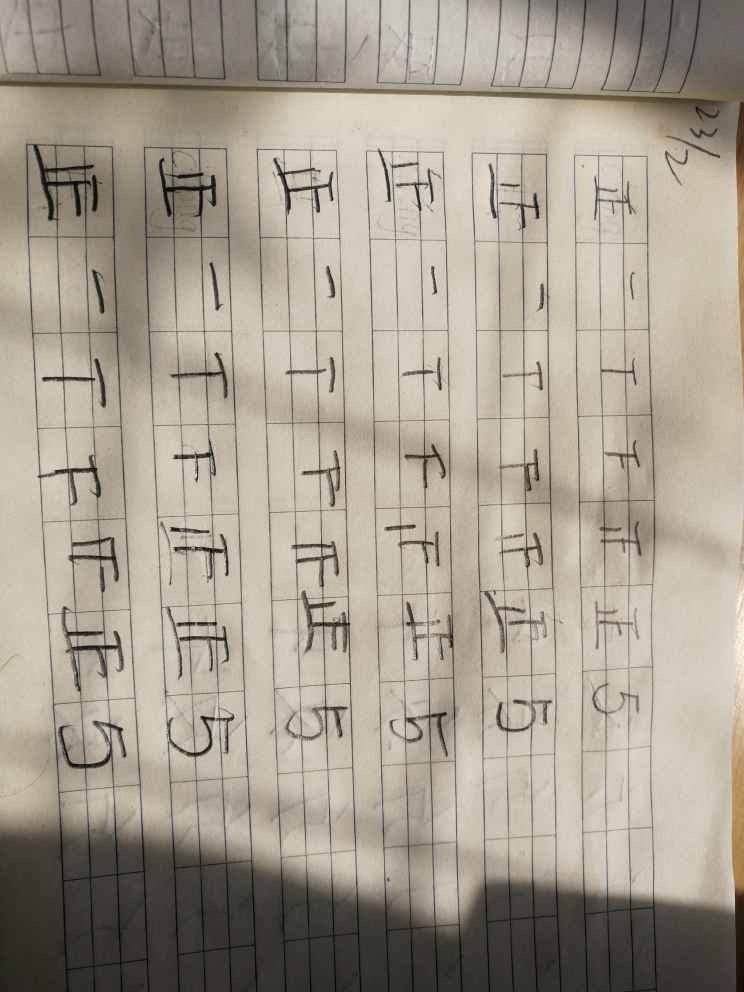 23/2
正 一 丅 下 正 5
正 一 丅 下 正 5
正 一 丅 下 正 5
正 一 丅 下 正 5
正 一 丅 下 正 5
正 一 丅 下 正 5